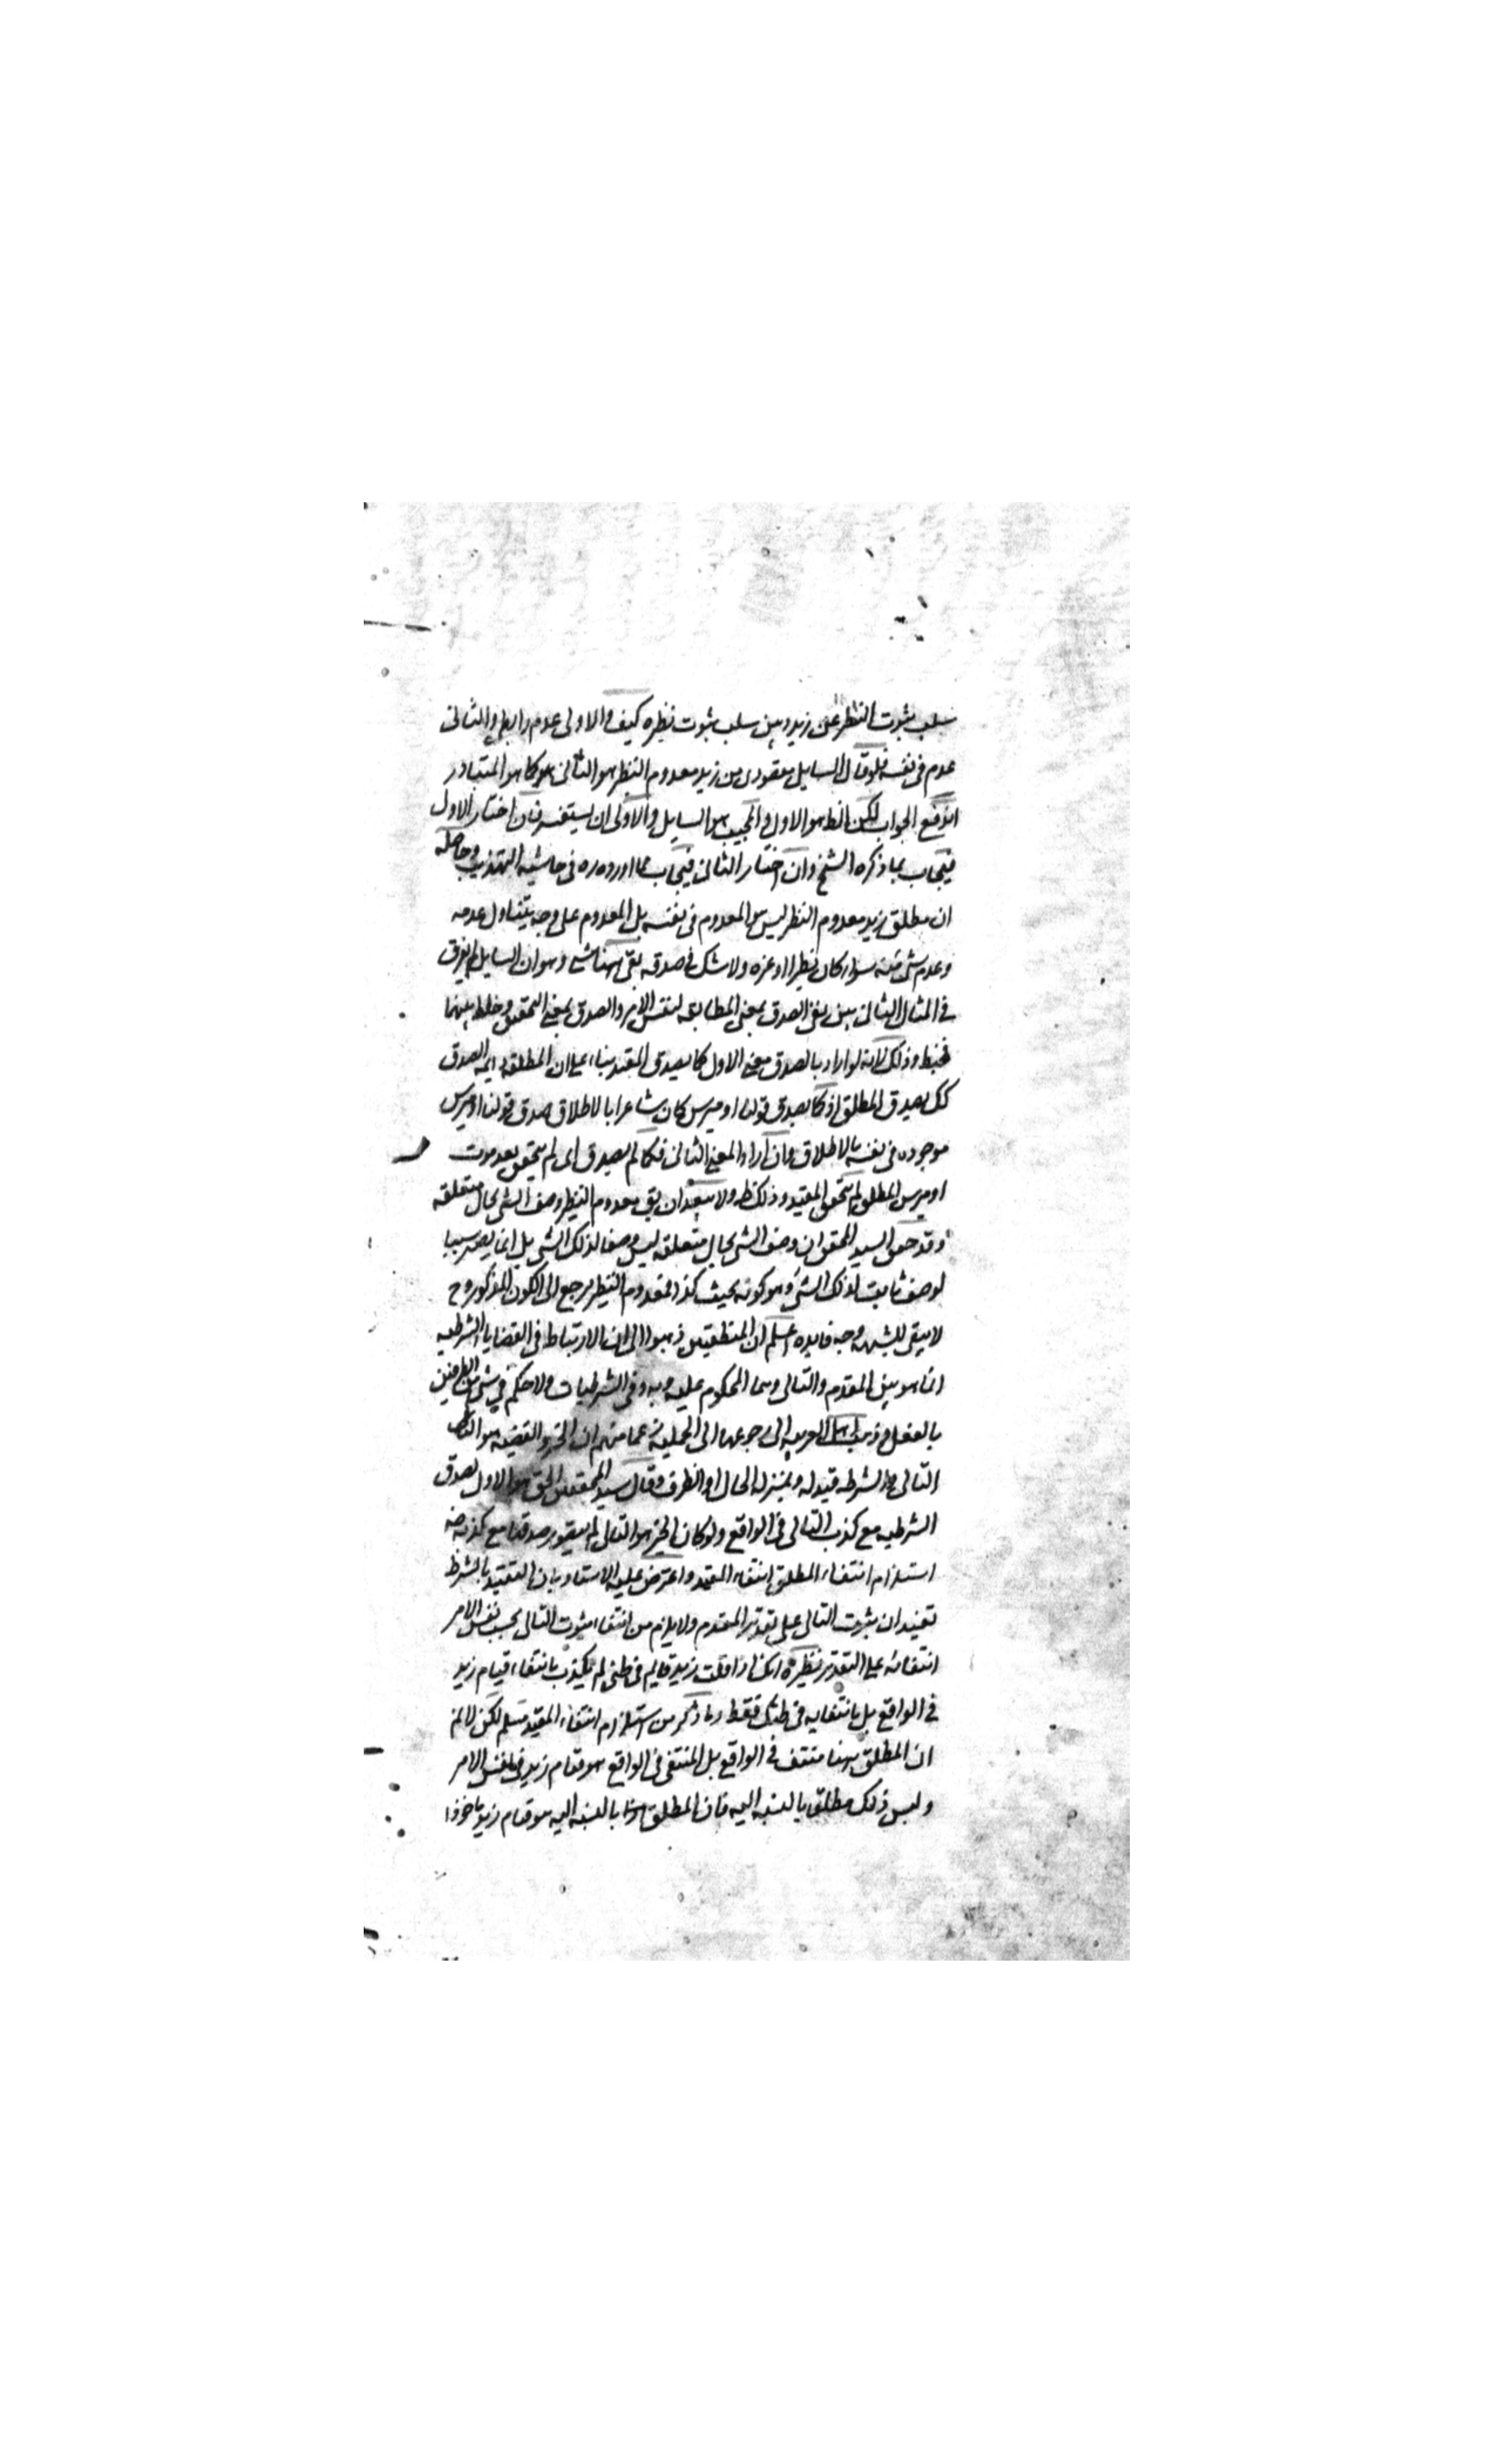 سلب ثبوت النظر عن زيد وبين سلب ثبوت نظيره كيف والاولى عدم رابطى والثانى
عدم فى نفسه فلو قال السايل مقصودى من زيد معدوم النظير هو الثانى كما هو المتبادر
اندفع الجواب لكن الظ هو الاول والمجيب هو السايل والاولى ان يستفسر فان اختار الاول
فيجاب بما ذكره الشيخ وان اختار الثانى فيجاب مما اورده فى حاشيه التهذيب وحاصله
ان مطلق زيد معدوم النظر ليس هو المعدوم فى نفسه بل المعدوم على وجه يتناول عدمه
وعدم شى عنه سواء كان نظيرا او غيره ولا شك فى صدقه بقى ههنا شى وهو ان السايل لم يفرق
فى المثال الثانى بين نفى الصدق بمعنى المطابقه لنفس الامر والصدق بمعنى التحقق وخلط بينهما
فخبط وذلك لانه لو اراد بالصدق معنى الاول كما يصدق المقيد بناء على ان المطلقه دايمه الصدق
كك يصدق المطلق اذ كما يصدق قولنا اوميرس كان شاعرا بالاطلاق صدق قولنا اوميرس
موجود فى نفسه بالاطلاق وان اراد المعنى الثانى فكما لم يصدق اى لم يتحقق بعد موت
اوميرس المطلق لم يتحقق المقيد وذلك ظ ولا يبعد ان يق معدوم النظير وصف الشى بحال متعلقه
وقد حقق السيد المحقق ان وصف الشى بحال متعلقه ليس وصفا لذلك الشى بل انما يصير سببا
لوصف ثابت لذلك الشئ وهو كونه بحيث كذا فمعدوم النظير يرجع الى الكون المذكور وح
لا يبقى للشبهه وجه فايده اعلم ان المنطقيين ذهبوا الى ان الارتباط فى القضايا الشرطيه
انما هو بين المقدم والتالى وهما المحكوم عليه وبه فى الشرطيات ولا حكم فى شى من الطرفين
بالفعل وذهب اهل العربيه الى رجوعها الى الحمليه زعما منهم ان الخبر والقضيه هو
التالى والشرط قيد له وبمنزله الحال او الظرف وقال سيد المحققين الحق هو الاول لصدق
الشرطيه مع كذب التالى فى الواقع ولو كان الخبر هو التالى لم يتصور صدقها مع كذبه ضه
استلزام انتفاء المطلق انتفاء المقيد واعترض عليه الاستاد بان التقييد بالشرط
تفيد ان ثبوت التالى على تقدير المقدم ولا يلزم من انتفاء ثبوت التالى بحسب نفس الامر
انتفائه على التقدير نظيره انك اذا قلت زيد قايم فى ظنى لم يكذب بانتفاء قيام زيد
فى الواقع بل بانتفايه فى ظنك فقط وما ذكر من استلزام انتفاء المقيد مسلم لكن لا نم
ان المطلق ههنا منتف فى الواقع بل المنتفى فى الواقع هو قيام زيد فى نفس الامر
وليس ذلك مطلق بالنسبه اليه فان المطلق بالنسبه اليه هو قيام زيد ماخوذا